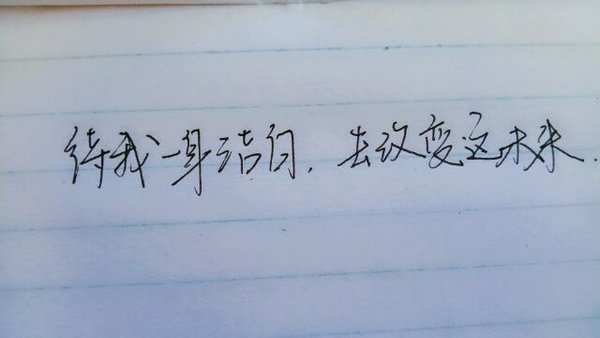 待我一身洁白,去改变这未来.